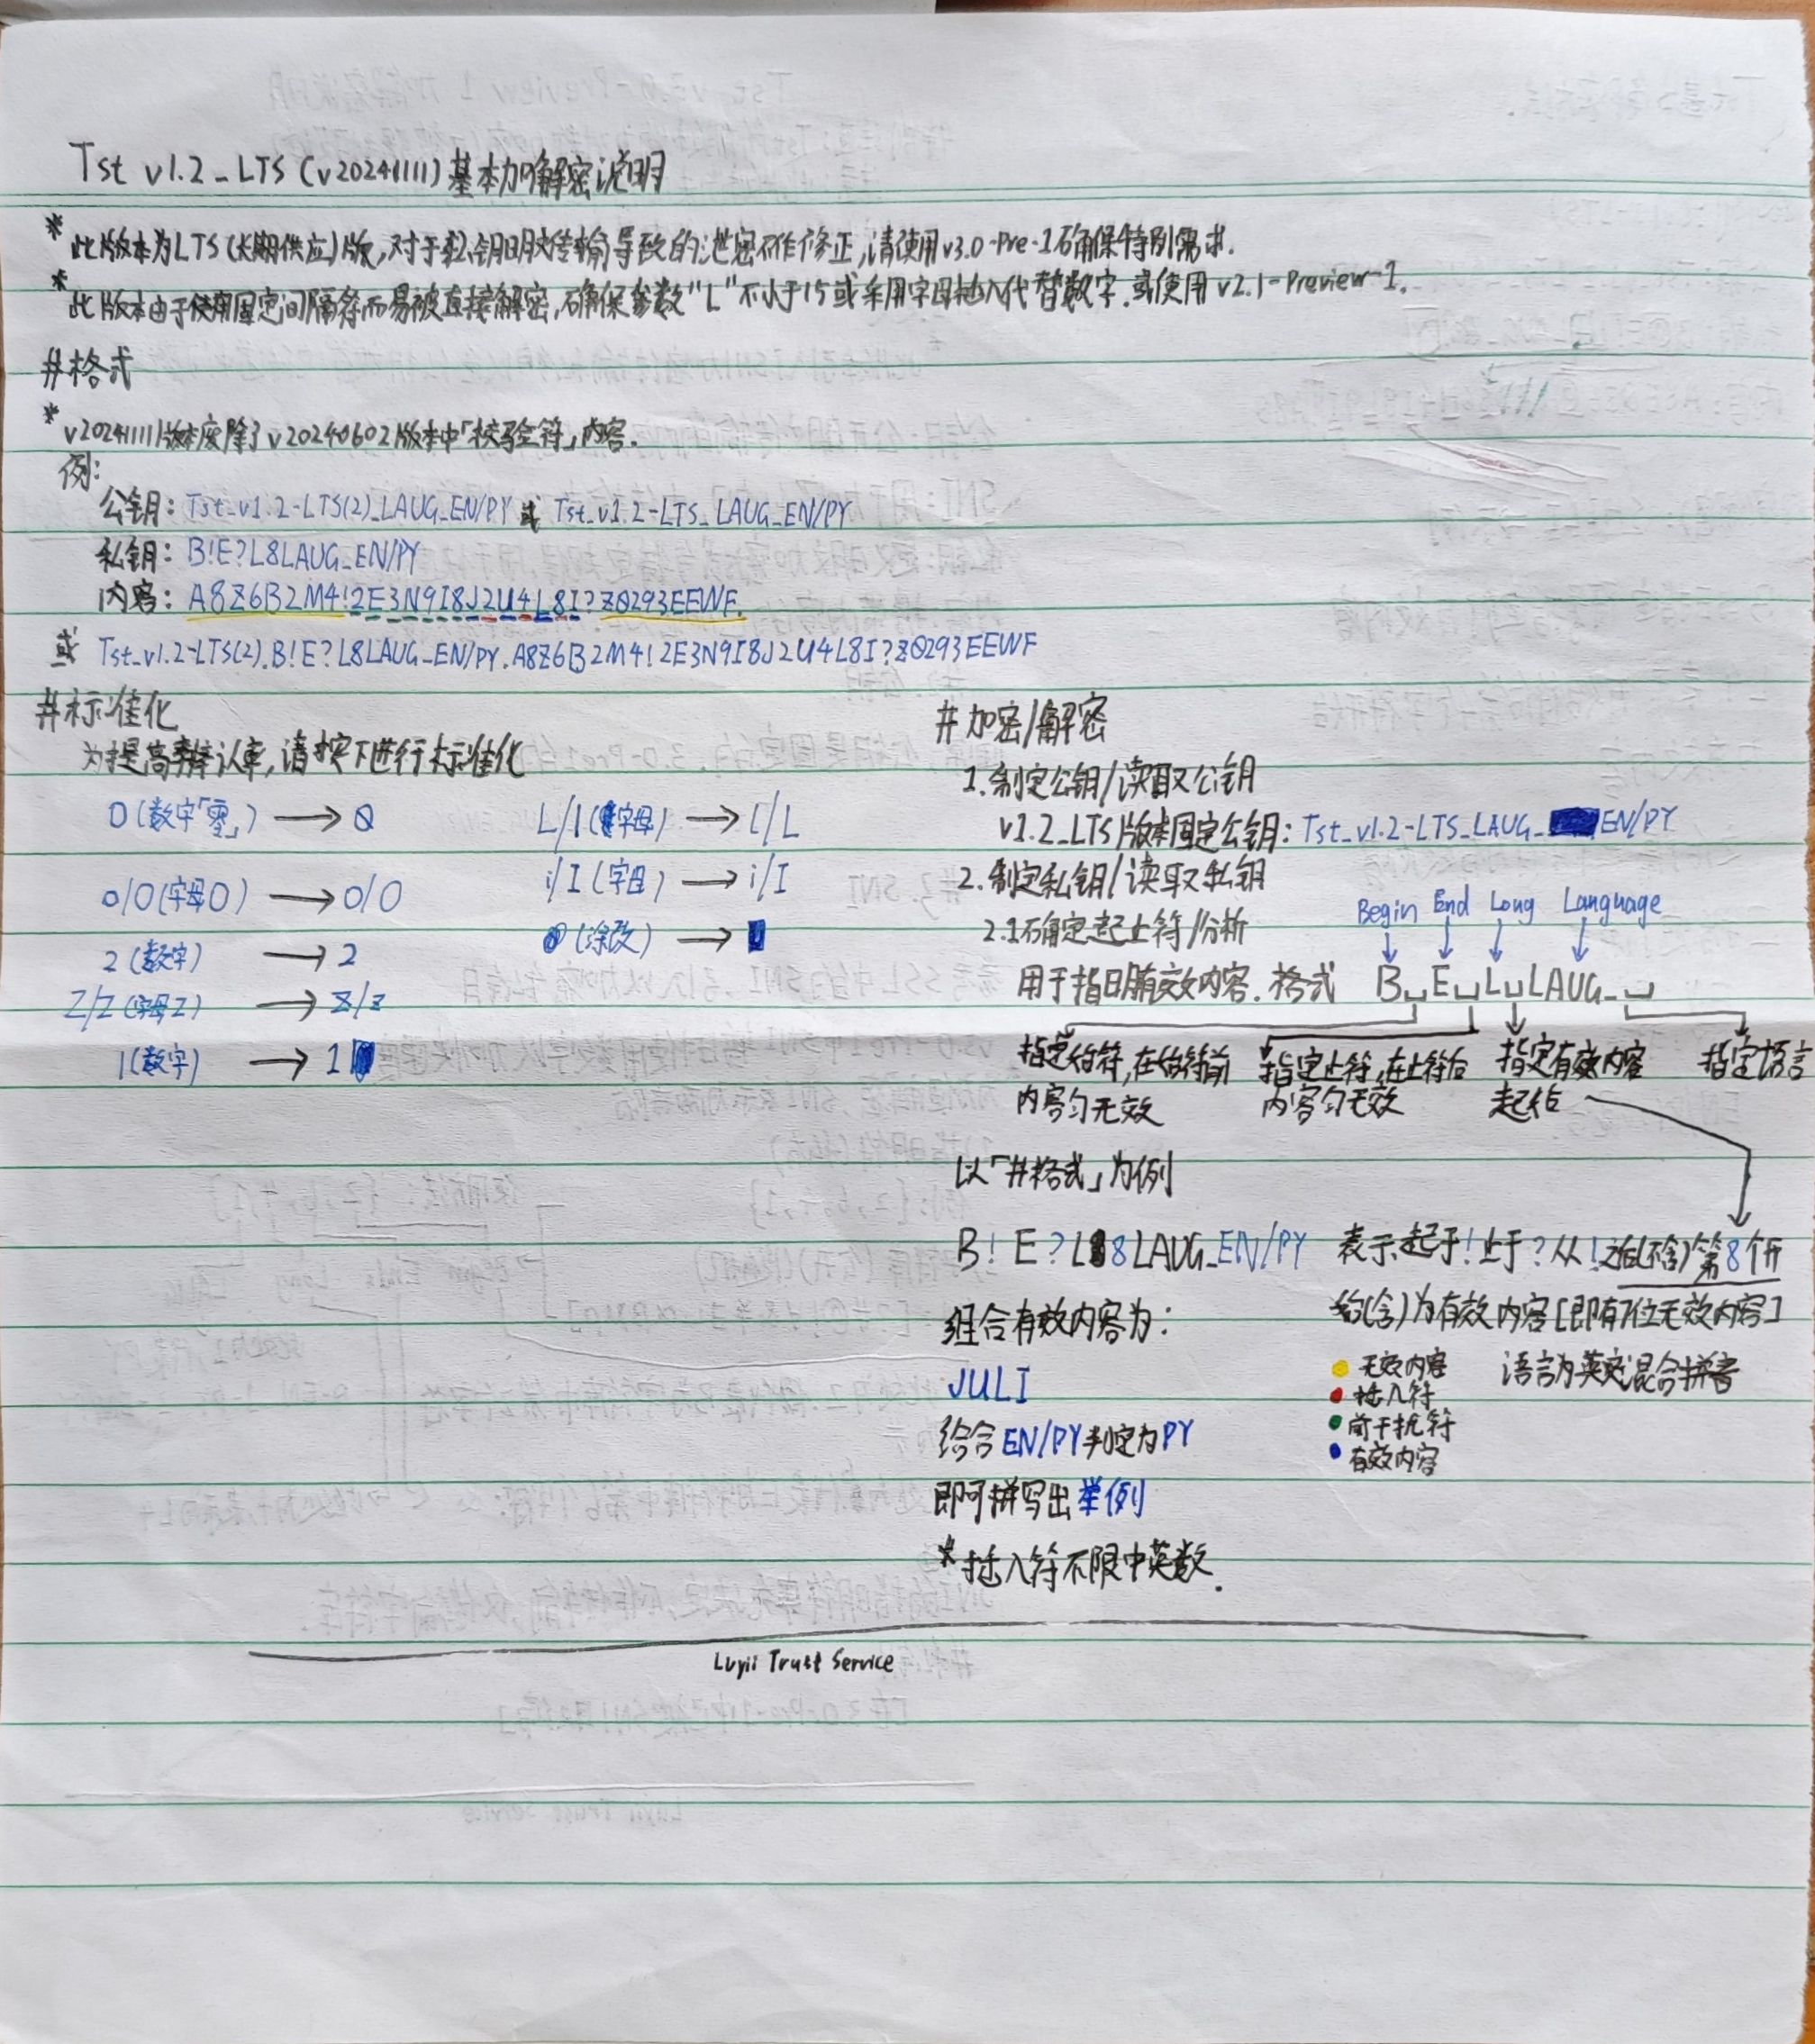 Tst v1.2_LTS (v20241111) 基本加解密说明
*此版本为LTS(长期供应)版,对于私钥明文传输导致的泄密不作修正,请使用v3.0-Pre-1确保特别需求.
*此版本由于使用固定间隔符而易被直接解密,确保参数"L"不小于15或采用字母插入代替数字.或使用v2.1-Preview-1.
#格式
*v20241111版本废除了v20240602版本中「校验符」内容.
例:
公钥: Tst_v1.2-LTS(2)_LAUG_EN/PY 或 Tst_v1.2-LTS_LAUG_EN/PY
私钥: B!E?L8LAUG_EN/PY
内容: A8Z6B2M4!2E3N9I8J2U4L8I?Z0293EEWF.
或 Tst_v1.2-LTS(2).B!E?L8LAUG_EN/PY.A8Z6B2M4!2E3N9I8J2U4L8I?Z0293EEWF
#标准化
为提高辨认率,请按下进行标准化
0(数字「零」) → 0
o/O(字母O) → o/O
2(数字) → 2
Z/z(字母Z) → Z/z
1(数字) → 1
L/l(字母) → l/L
i/I(字母) → i/I
(涂改) →
#加密/解密
1.制定公钥/读取公钥
v1.2_LTS版本固定公钥: Tst_v1.2-LTS_LAUG_EN/PY
2.制定私钥/读取私钥
2.1确定起止符/分析
Begin End Long Language
用于指明有效内容.格式 B␣E␣L␣LAUG_␣
指定始符,在始符前内容匀无效
指定止符,在止符后内容匀无效
指定有效内容起始
指定语言
以「#格式」为例
B!E?L8LAUG_EN/PY 表示起于!止于?从!之后(不含)第8个开
始(含)为有效内容[即有7位无效内容]
语言为英文混合拼音
组合有效内容为:
JULI
结合EN/PY判定为PY
即可拼写出举例
*插入符不限中英数.
无效内容
插入符
前干扰符
有效内容
Luyii Trust Service